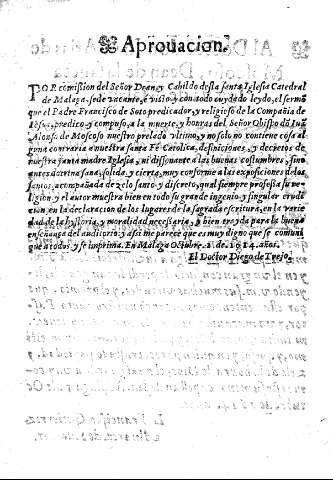 Aprouacion.
POR comission del Señor Dean, y Cabildo desta santa Iglesia Catedral
de Malaga, sede vacante, è visto y con todo cuydado leydo, el sermō
que el Padre Francisco de Soto predicador, y religioso de la Compañia de
Iesus, predico, y compuso, a la muerte, y honras del Señor Obispo dō Iuā
Alonso de Moscoso nuestro prelado vltimo, y no solo no contiene cosa al
guna contraria a nuestra santa Fè Catolica, definiciones, y decretos de
nuestra santa madre Iglesia, ni dissonante a las buenas costumbres, sino
antes doctrina sana, solida, y cierta, muy conforme a las exposiciones de los
santos, acompañada de zelo santo, y discreto, qual siempre professa su re-
ligion y el autor muestra bien en todo su grande ingenio, y singular erudi
cion, en la declaracion de los lugares de la sagrada escritura, en la verdad
de la hystoria, y moralidad necessaria, y bien trayda para la buena
enseñança del auditorio: y assi me parece que es muy digno que se comuni
que a todos, y se imprima. En Malaga Octubre. 2. de 1614. años.
El Doctor Diego de Trejo.